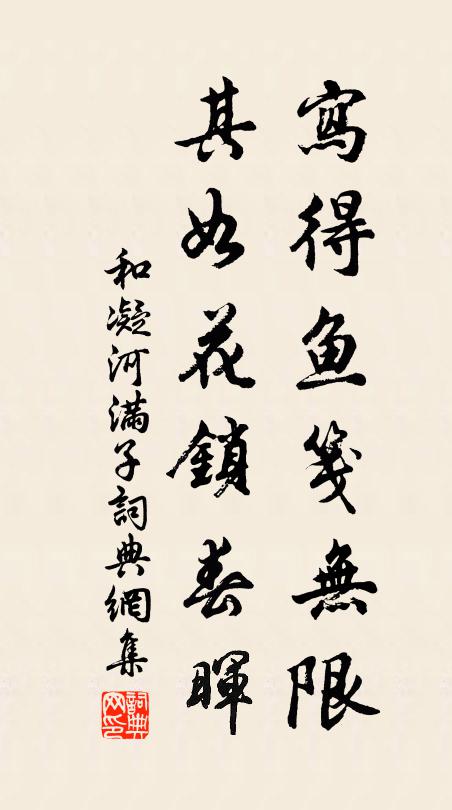 寫得鱼箋無限
其如花鎖春暉
和凝河滿子詞典網集
詞典网印